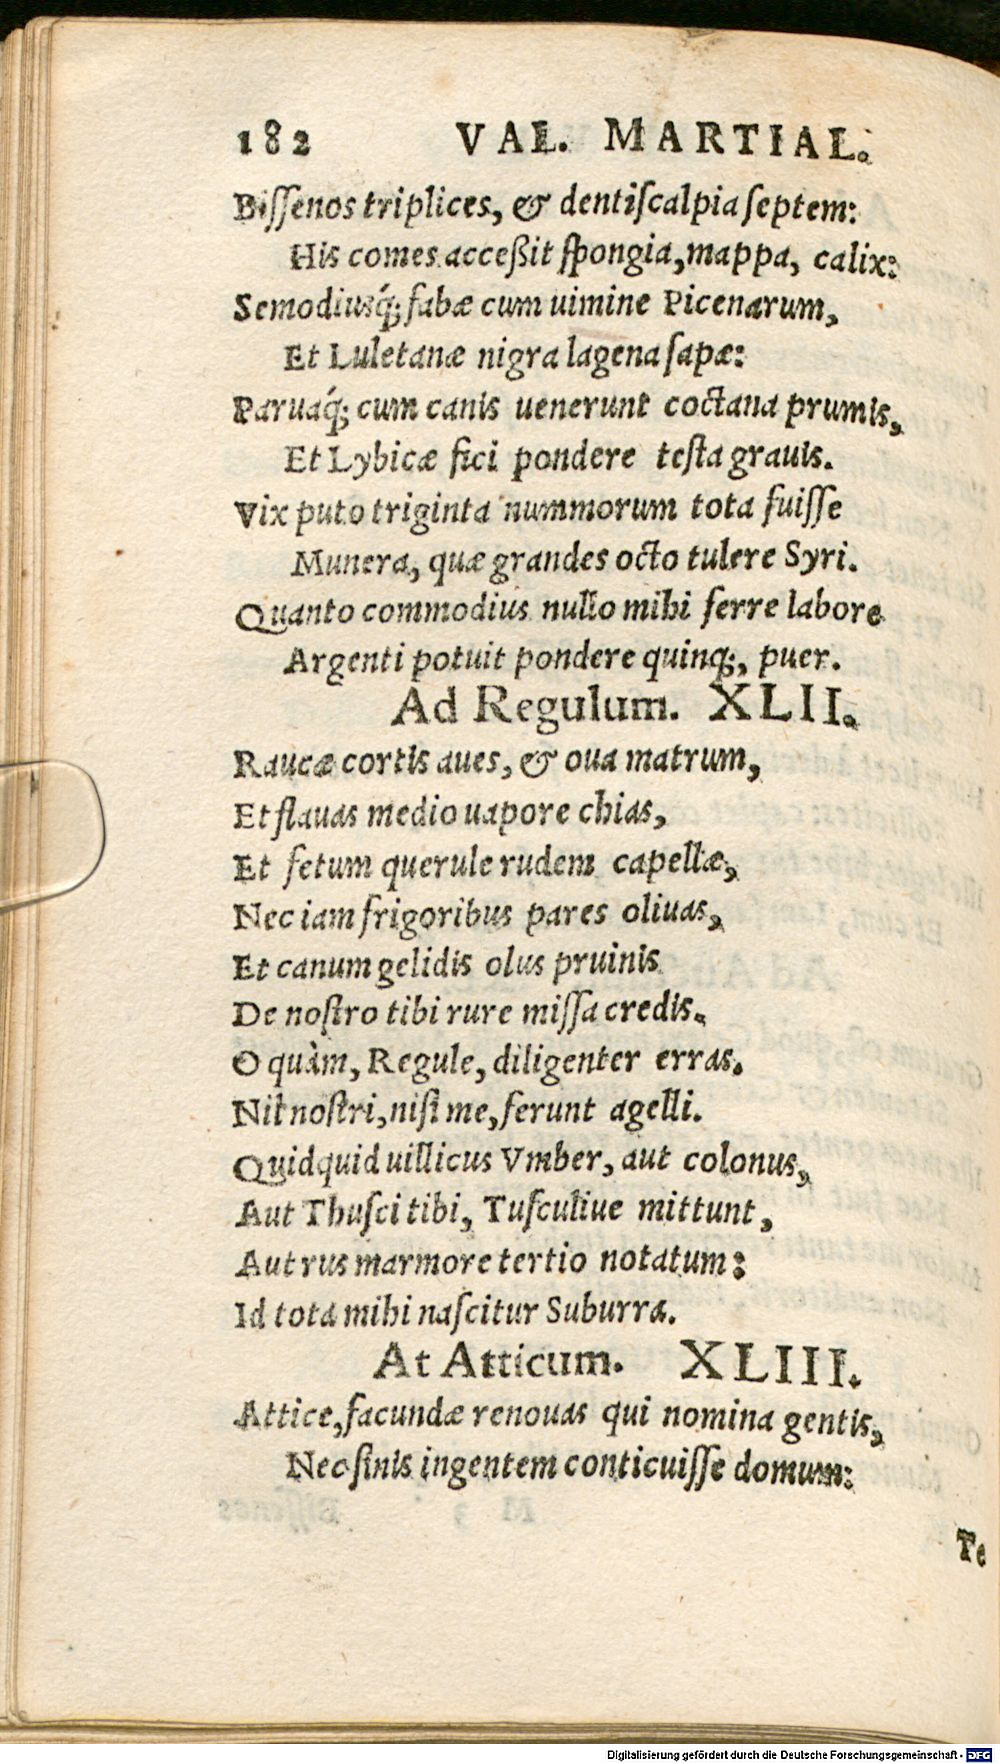 182 VAL. MARTIAL.
Biſſenos triplices, & dentiſcalpia ſeptem:
His comes acceßit ſpongia, mappa, calix:
Semodiusq́; fabæ cum uimine Picenarum,
Et Luletanæ nigra lagena ſapæ:
Paruaq́; cum canis uenerunt coctana prumis,
Et Lybicæ fici pondere teſta grauis.
Vix puto triginta nummorum tota fuiſſe
Munera, quæ grandes octo tulere Syri.
Quanto commodius nullo mihi ferre labore
Argenti potuit pondere quinq;, puer.
Ad Regulum. XLII.
Raucæ cortis aues, & oua matrum,
Et flauas medio uapore chias,
Et fetum querule rudem capellæ,
Nec iam frigoribus pares oliuas,
Et canum gelidis olus pruinis
De noſtro tibi rure miſſa credis.
O quàm, Regule, diligenter erras.
Nil noſtri, niſi me, ferunt agelli.
Quidquid uillicus Vmber, aut colonus,
Aut Thuſci tibi, Tuſculiue mittunt,
Aut rus marmore tertio notatum:
Id tota mihi naſcitur Suburra.
At Atticum. XLIII.
Attice, facundæ renouas qui nomina gentis,
Nec ſinis ingentem conticuiſſe domum:
Te
Digitalisierung gefördert durch die Deutsche Forschungsgemeinschaft - DFG